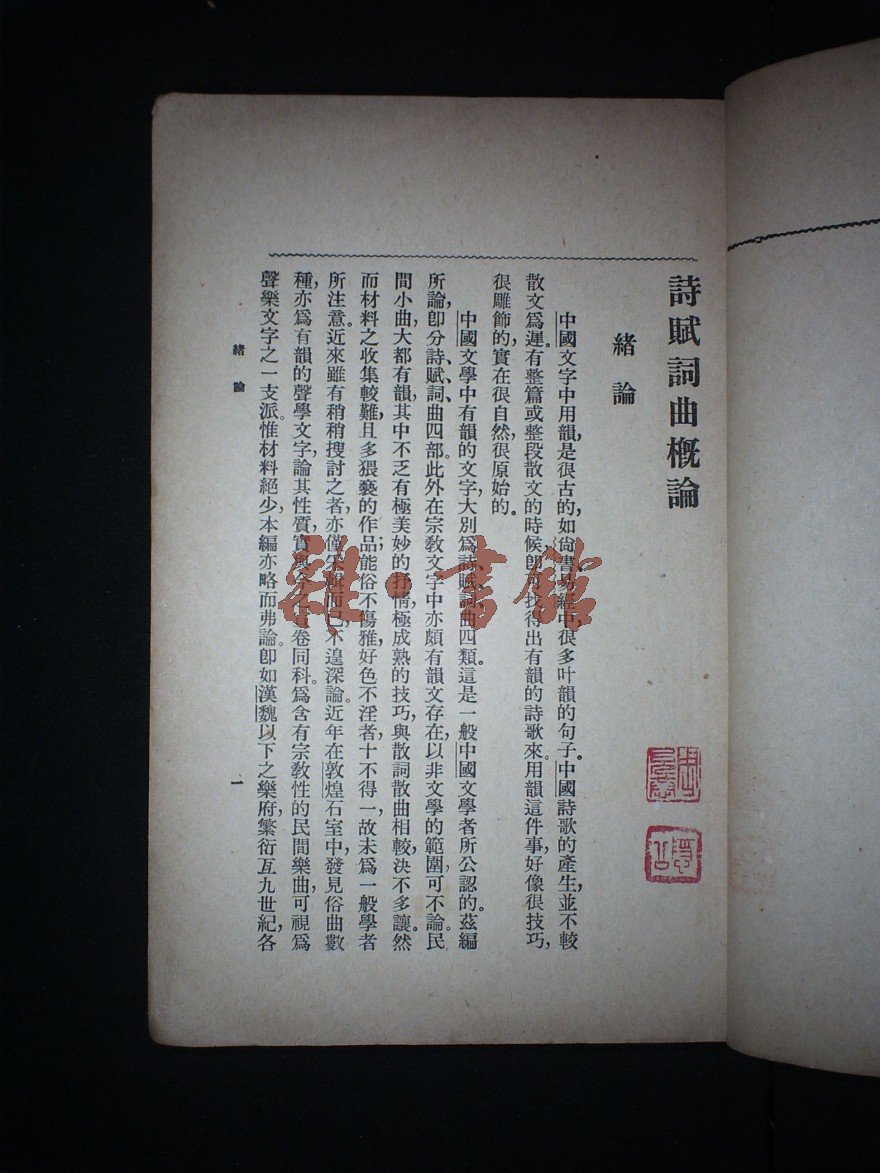 詩賦詞曲概論
緒論
中國文字中用韻,是很古的,如尙書、易經中,很多叶韻的句子。中國詩歌的產生,並不較
散文爲遲。有整篇或整段散文的時候,卽可找得出有韻的詩歌來。用韻這件事,好像很技巧,
很雕飾的,實在很自然,很原始的。
中國文學中有韻的文字,大別爲詩、賦、詞、曲四類。這是一般中國文學者所公認的。茲編
所論,卽分詩、賦、詞、曲四部。此外在宗敎文字中,亦頗有韻文存在,以非文學的範圍,可不論。民
間小曲,大都有韻,其中不乏有極美妙的抒情,極成熟的技巧,與散詞散曲相較,決不多讓。然
而材料之收集較難,且多猥褻的作品;能俗不傷雅,好色不淫者,十不得一,故未爲一般學者
所注意。近來雖有稍稍搜討之者,亦僅采輯而已,不遑深論。近年在敦煌石室中,發見俗曲數
種,亦爲有韻的聲學文字,論其性質,實與今之宣卷同科。爲含有宗敎性的民間樂曲,可視爲
聲樂文字之一支派。惟材料絕少,本編亦略而弗論。卽如漢魏以下之樂府,繁衍亙九世紀,各
緒論
一
雜·書館